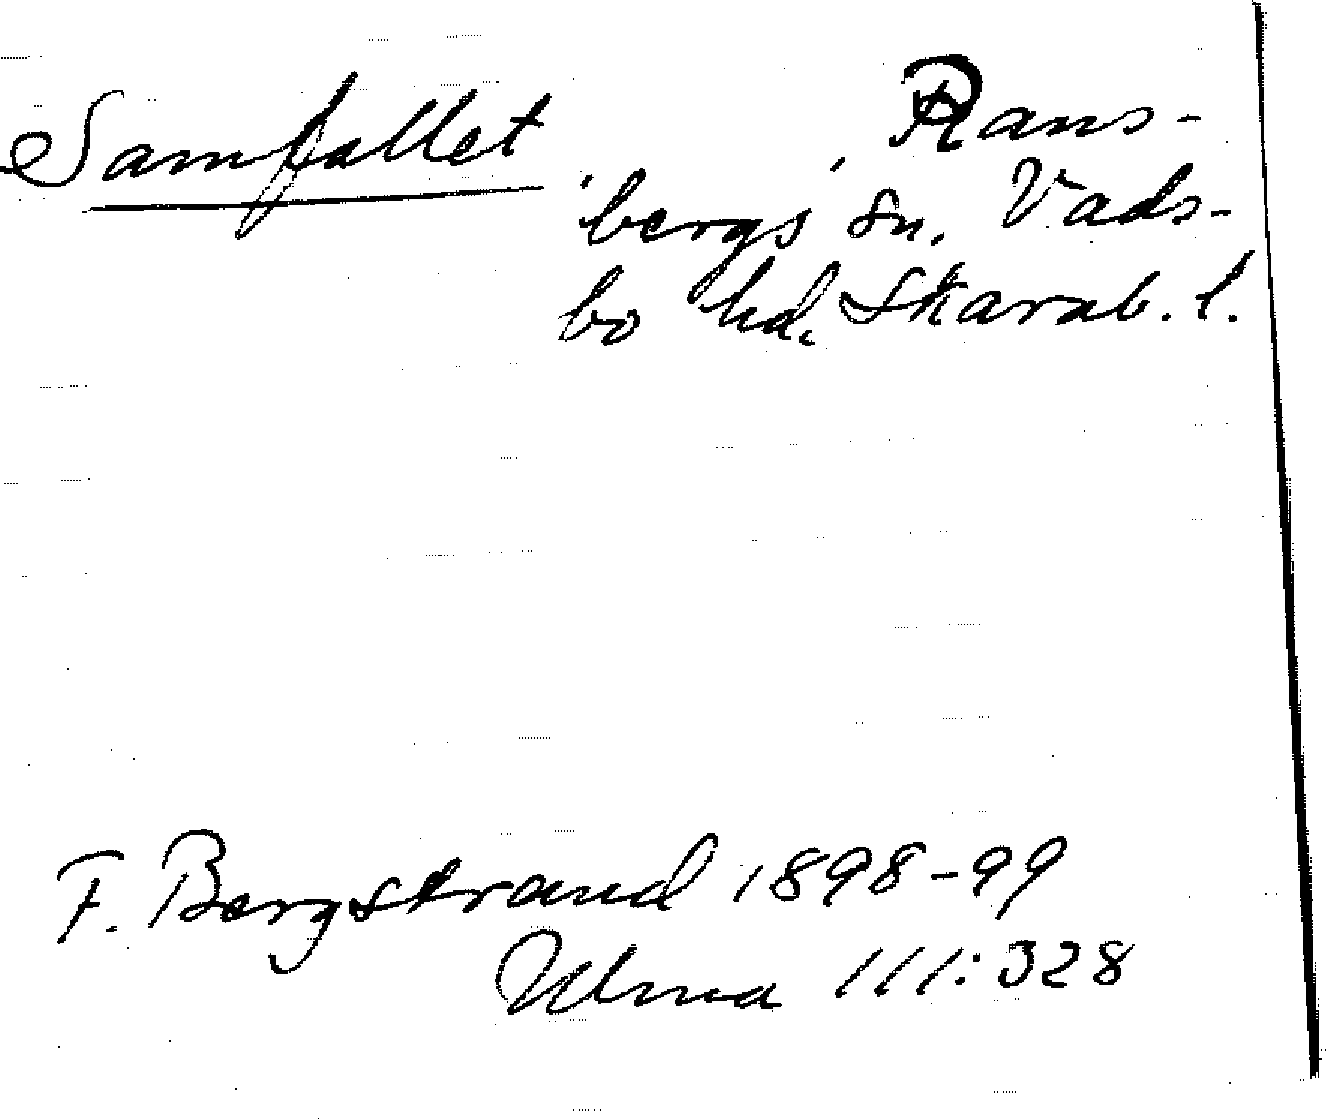 Samfallet, Rans-
bergs sn. Vads-
bo hd. Skarab. l.
F. Bergstrand 1898-99
Ulma 111:328